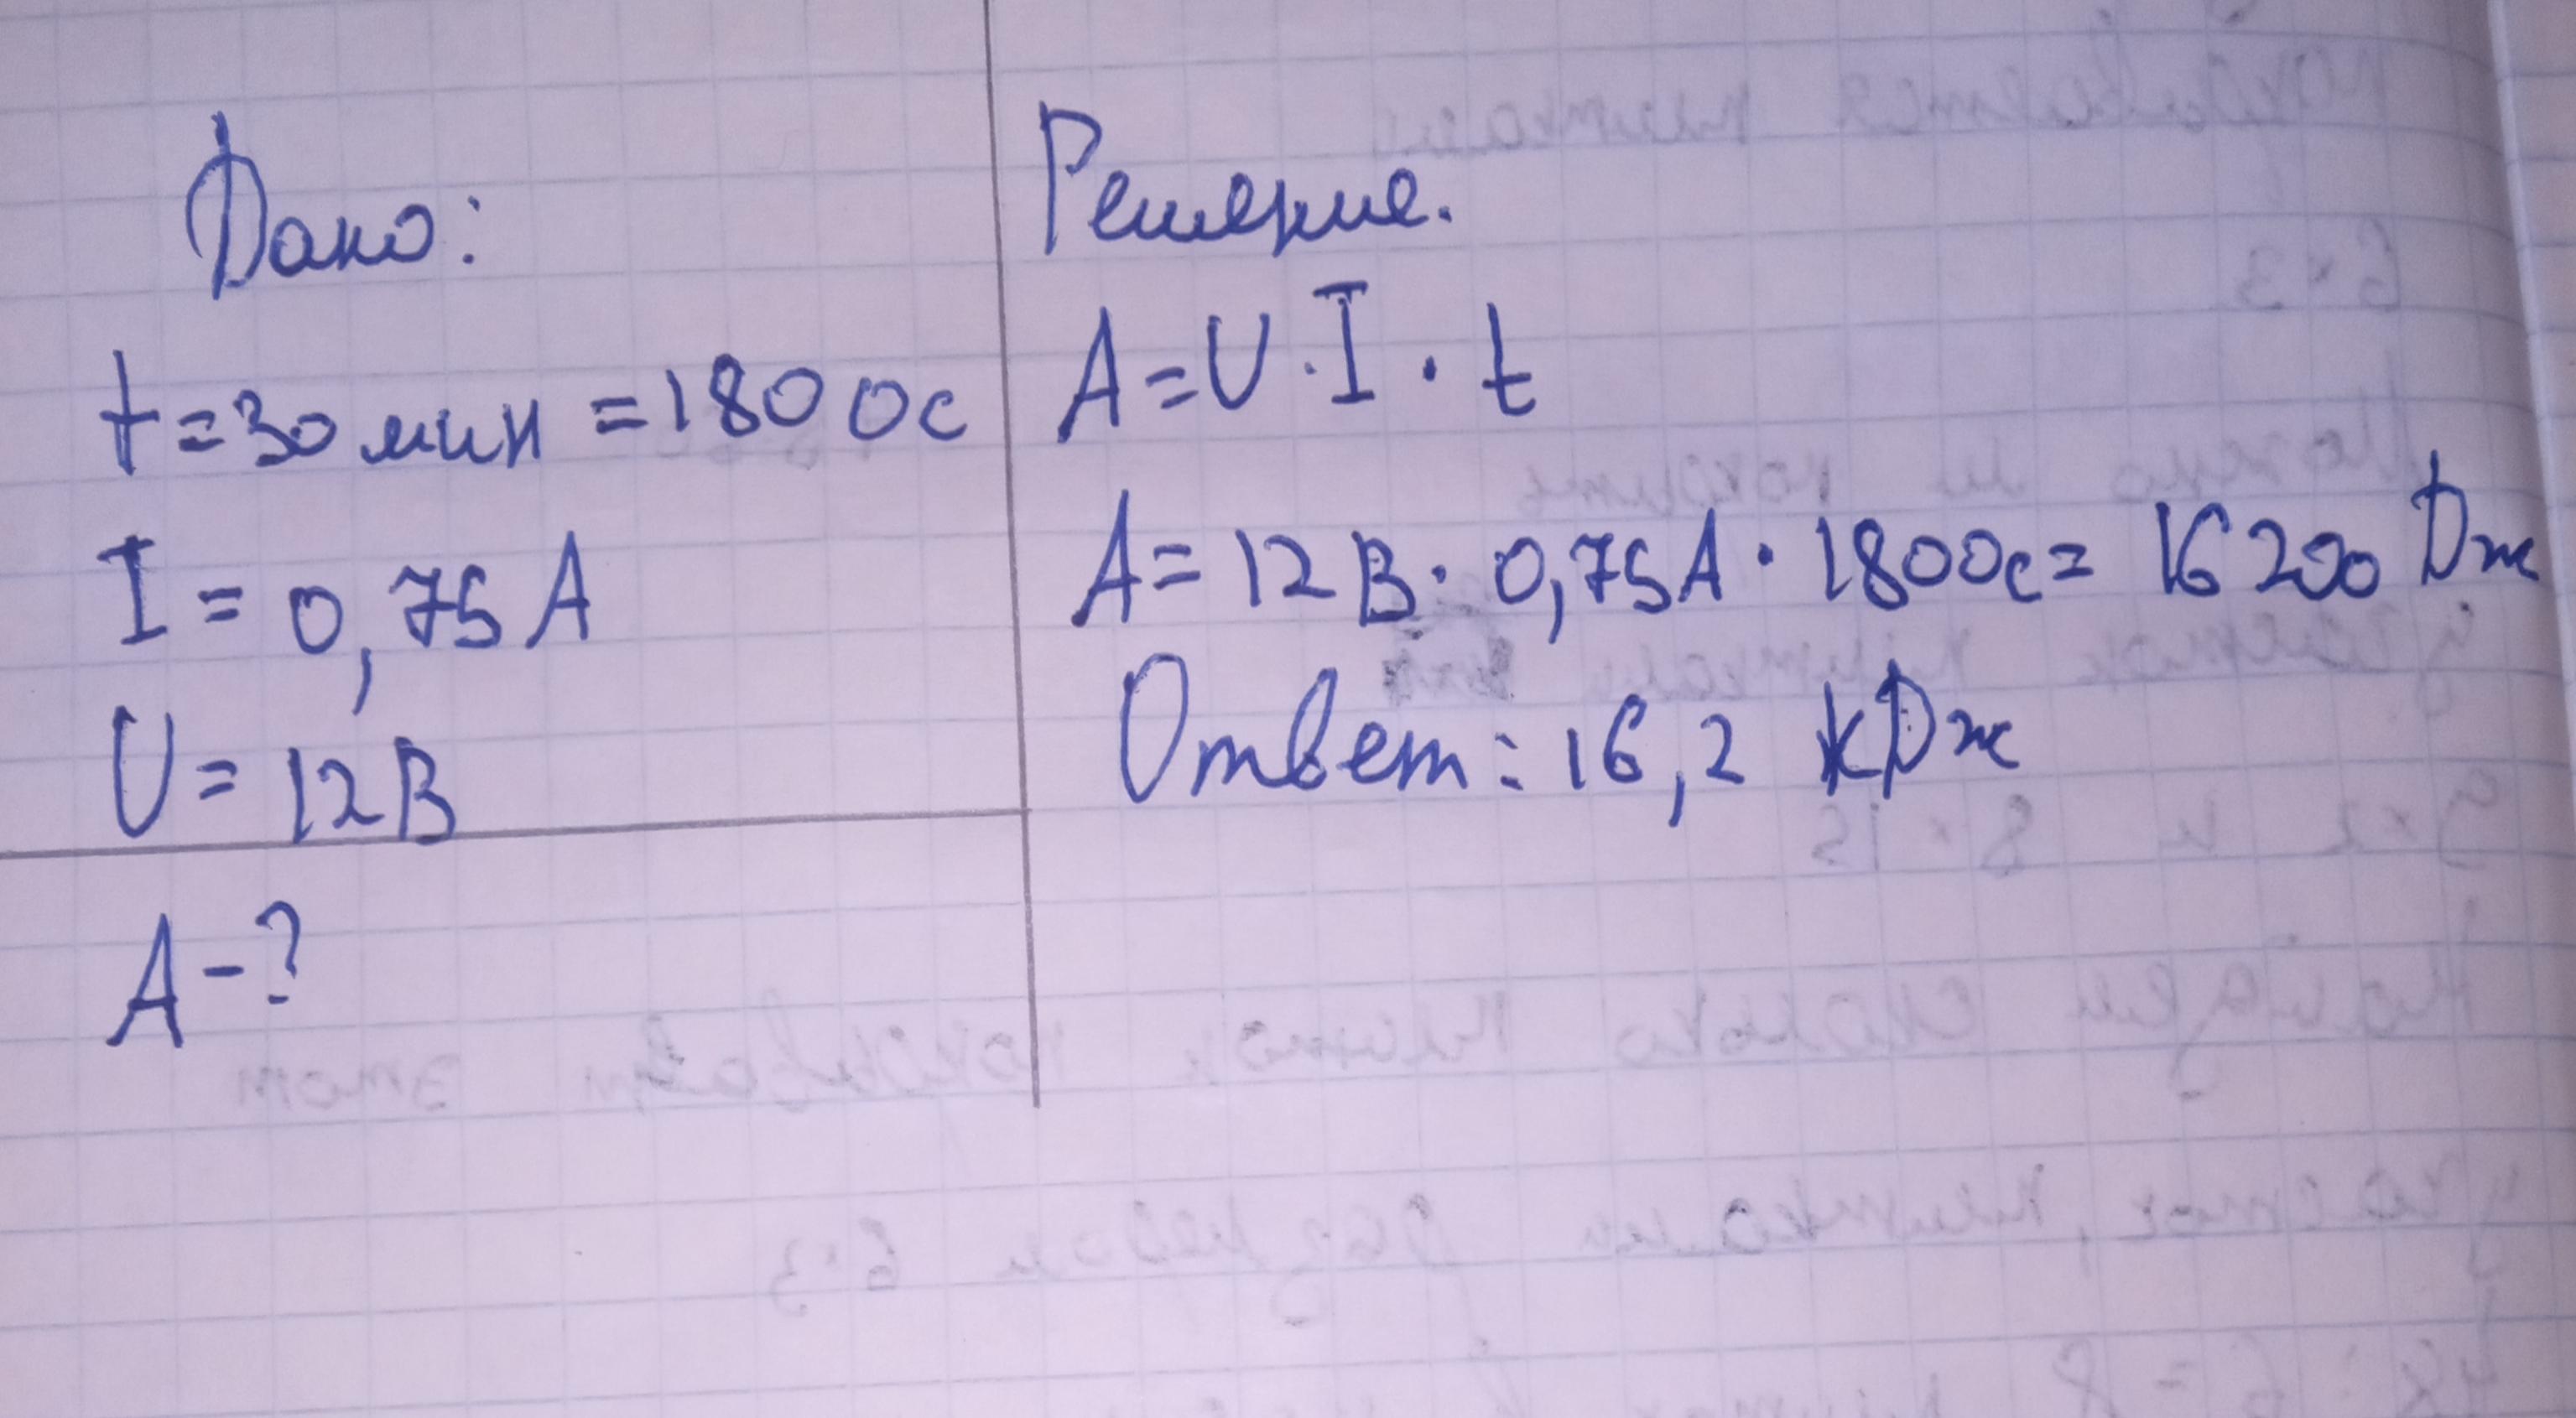 Дано:
t=30 мин =1800с
I = 0,75А
U = 12В
А-?
Решение.
A=U·I·t
A= 12В· 0,75А· 1800с= 16200 Дж
Ответ: 16,2 кДж